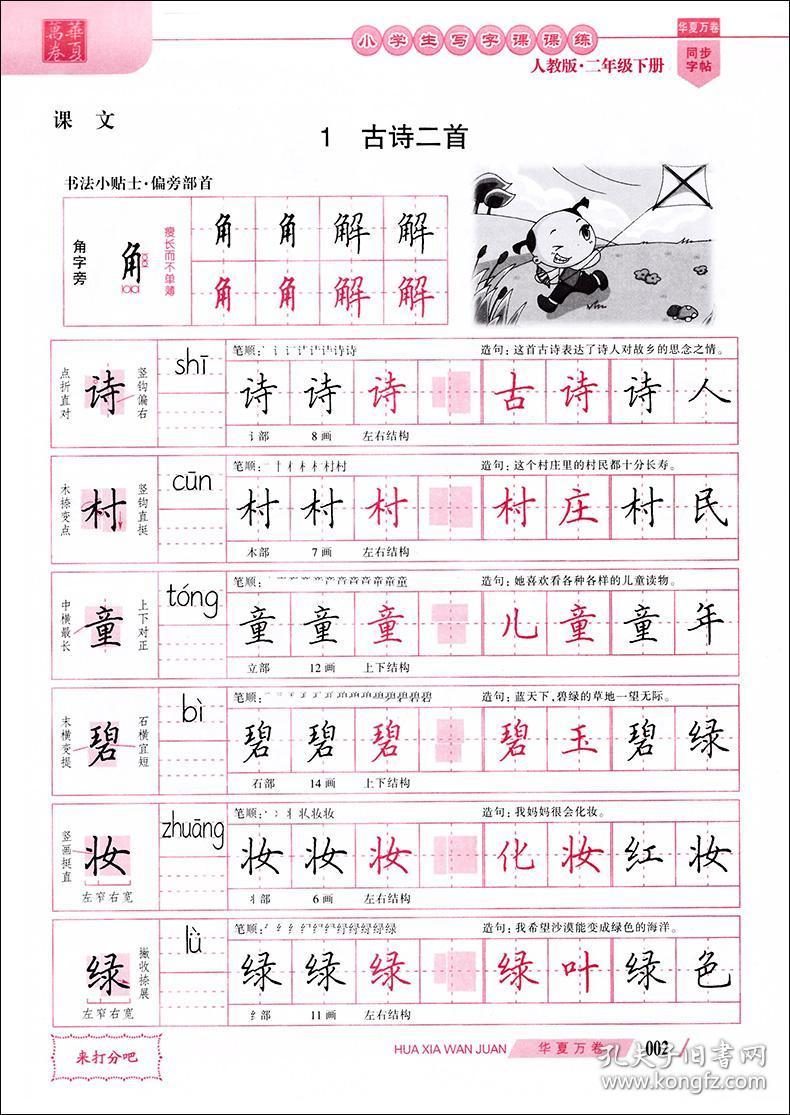 華夏萬卷
小学生写字课课练
人教版·二年级下册
华夏万卷
同步字帖
课 文
1 古诗二首
书法小贴士·偏旁部首
角字旁
角
瘦长而不单薄
角 角 解 解
角 角 解 解
点折直对
诗
竖钩偏右
shī
笔顺:
造句:这首古诗表达了诗人对故乡的思念之情。
诗 诗 诗 古 诗 诗 人
讠部 8画 左右结构
木捺变点
村
竖钩直挺
cūn
笔顺:
造句:这个村庄里的村民都十分长寿。
村 村 村 村 庄 村 民
木部 7画 左右结构
中横最长
童
上下对正
tóng
笔顺:
造句:她喜欢看各种各样的儿童读物。
童 童 童 儿 童 童 年
立部 12画 上下结构
末横变提
碧
石横宜短
bì
笔顺:
造句:蓝天下,碧绿的草地一望无际。
碧 碧 碧 碧 玉 碧 绿
石部 14画 上下结构
竖画挺直
妆
左窄右宽
zhuāng
笔顺:
造句:我妈妈很会化妆。
妆 妆 妆 化 妆 红 妆
丬部 6画 左右结构
绿
撇收捺展
左窄右宽
lǜ
笔顺:
造句:我希望沙漠能变成绿色的海洋。
绿 绿 绿 绿 叶 绿 色
纟部 11画 左右结构
来打分吧
HUA XIA WAN JUAN
华夏万卷
002
孔夫子旧书网
www.kongfz.com